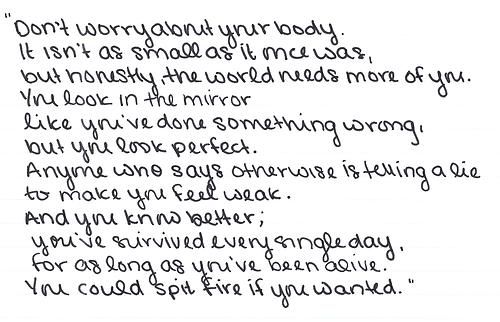 "Don't worry about your body.
It isn't as small as it once was,
but honestly, the world needs more of you.
You look in the mirror
like you've done something wrong,
but you look perfect.
Anyone who says otherwise is telling a lie
to make you feel weak.
And you know better;
you've survived every single day,
for as long as you've been alive.
You could spit fire if you wanted."